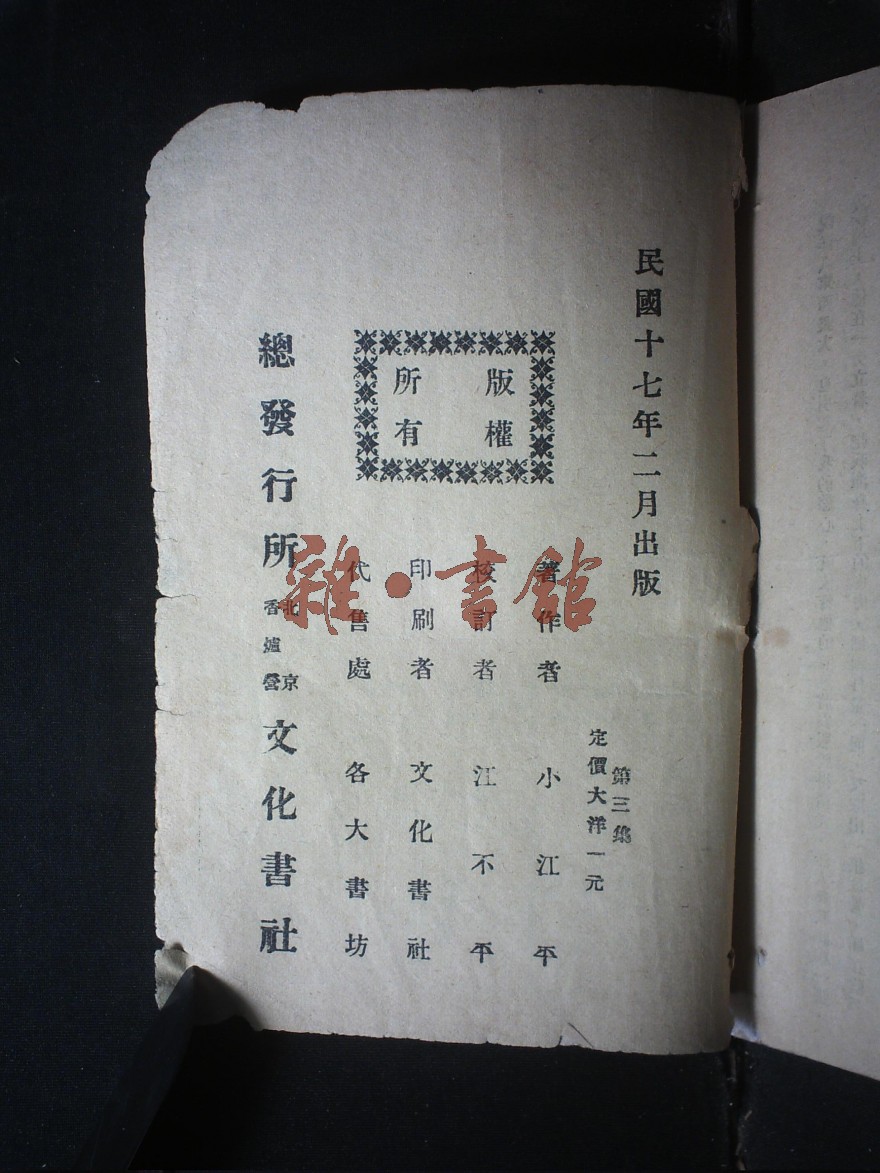 民國十七年二月出版
第三集
定價大洋一元
版權
所有
著作者 小江平
校訂者 江不平
印刷者 文化書社
代售處 各大書坊
總發行所 北京 香爐營 文化書社
雜·書館